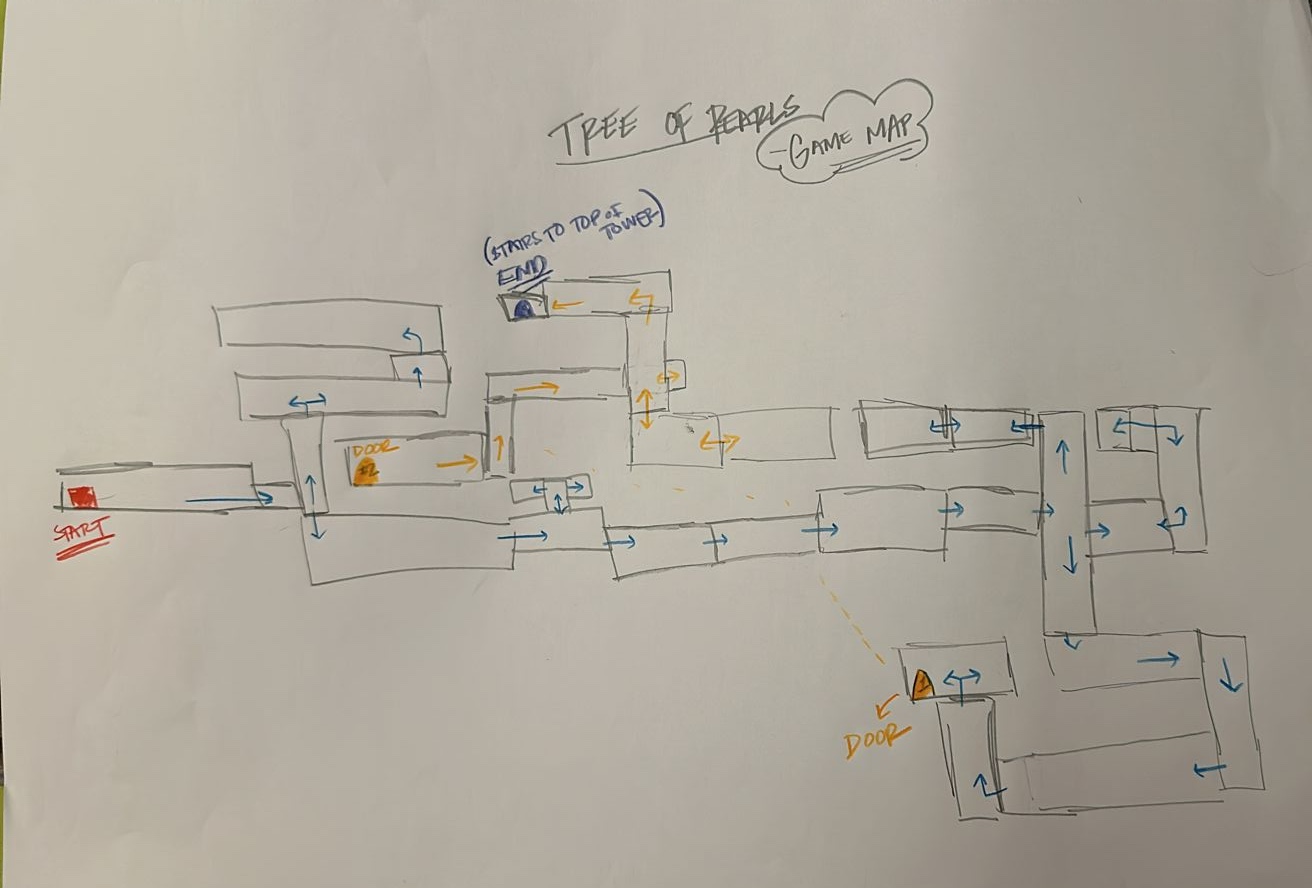 TREE OF PEARLS
-GAME MAP
(STAIRS TO TOP OF
TOWER)
END
DOOR
#2
START
1
DOOR